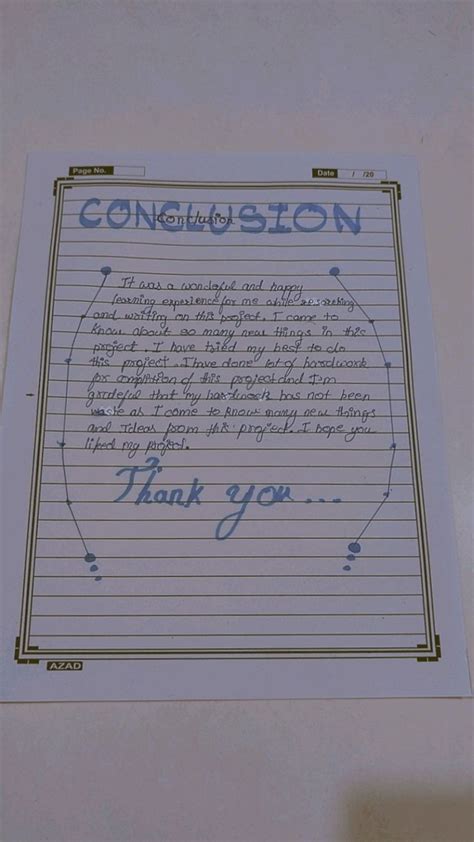 Page No.
Date / /20
CONCLUSION
Conclusion
It was a wondeful and happy
learning experience for me while researching
and writing on this project. I came to
know about so many new things in this
project. I have tried my best to do
this project. I have done lot of hardwork
for compltion of this project and I'm
grateful that my hardwork has not been
waste as I come to know many new things
and ideas from this project. I hope you
liked my project.
Thank you...
AZAD